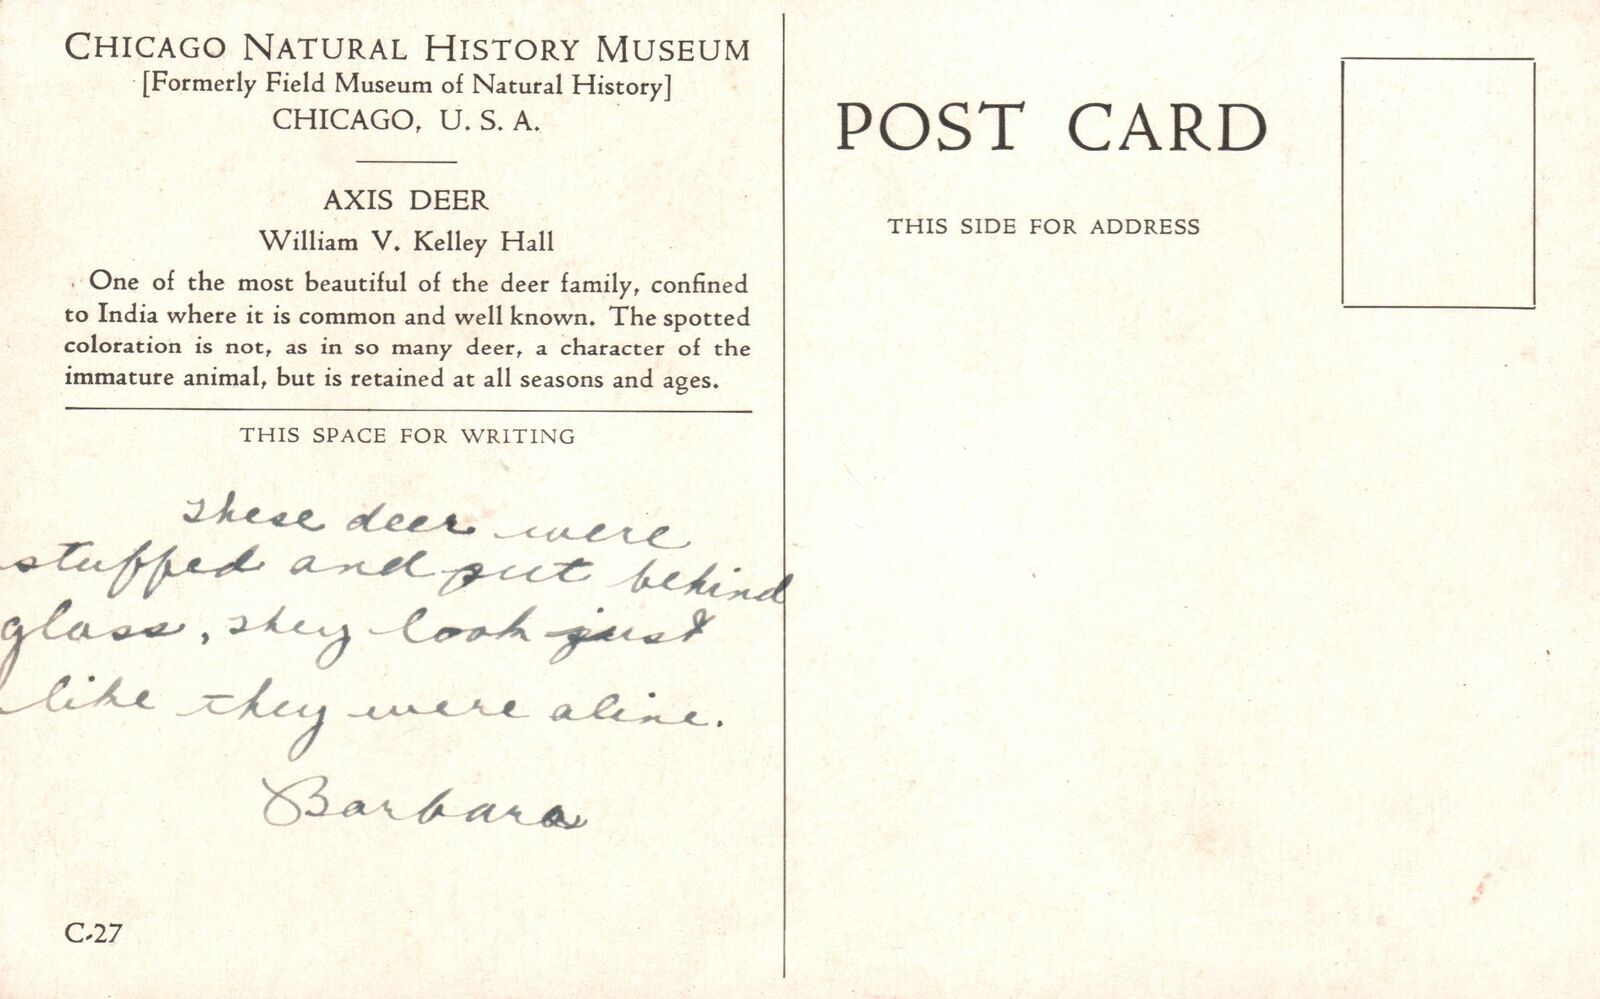 CHICAGO NATURAL HISTORY MUSEUM
[Formerly Field Museum of Natural History]
CHICAGO, U. S. A.
AXIS DEER
William V. Kelley Hall
One of the most beautiful of the deer family, confined
to India where it is common and well known. The spotted
coloration is not, as in so many deer, a character of the
immature animal, but is retained at all seasons and ages.
THIS SPACE FOR WRITING
These deer were
stuffed and put behind
glass, they look just
like they were alive.
Barbara
C-27
POST CARD
THIS SIDE FOR ADDRESS